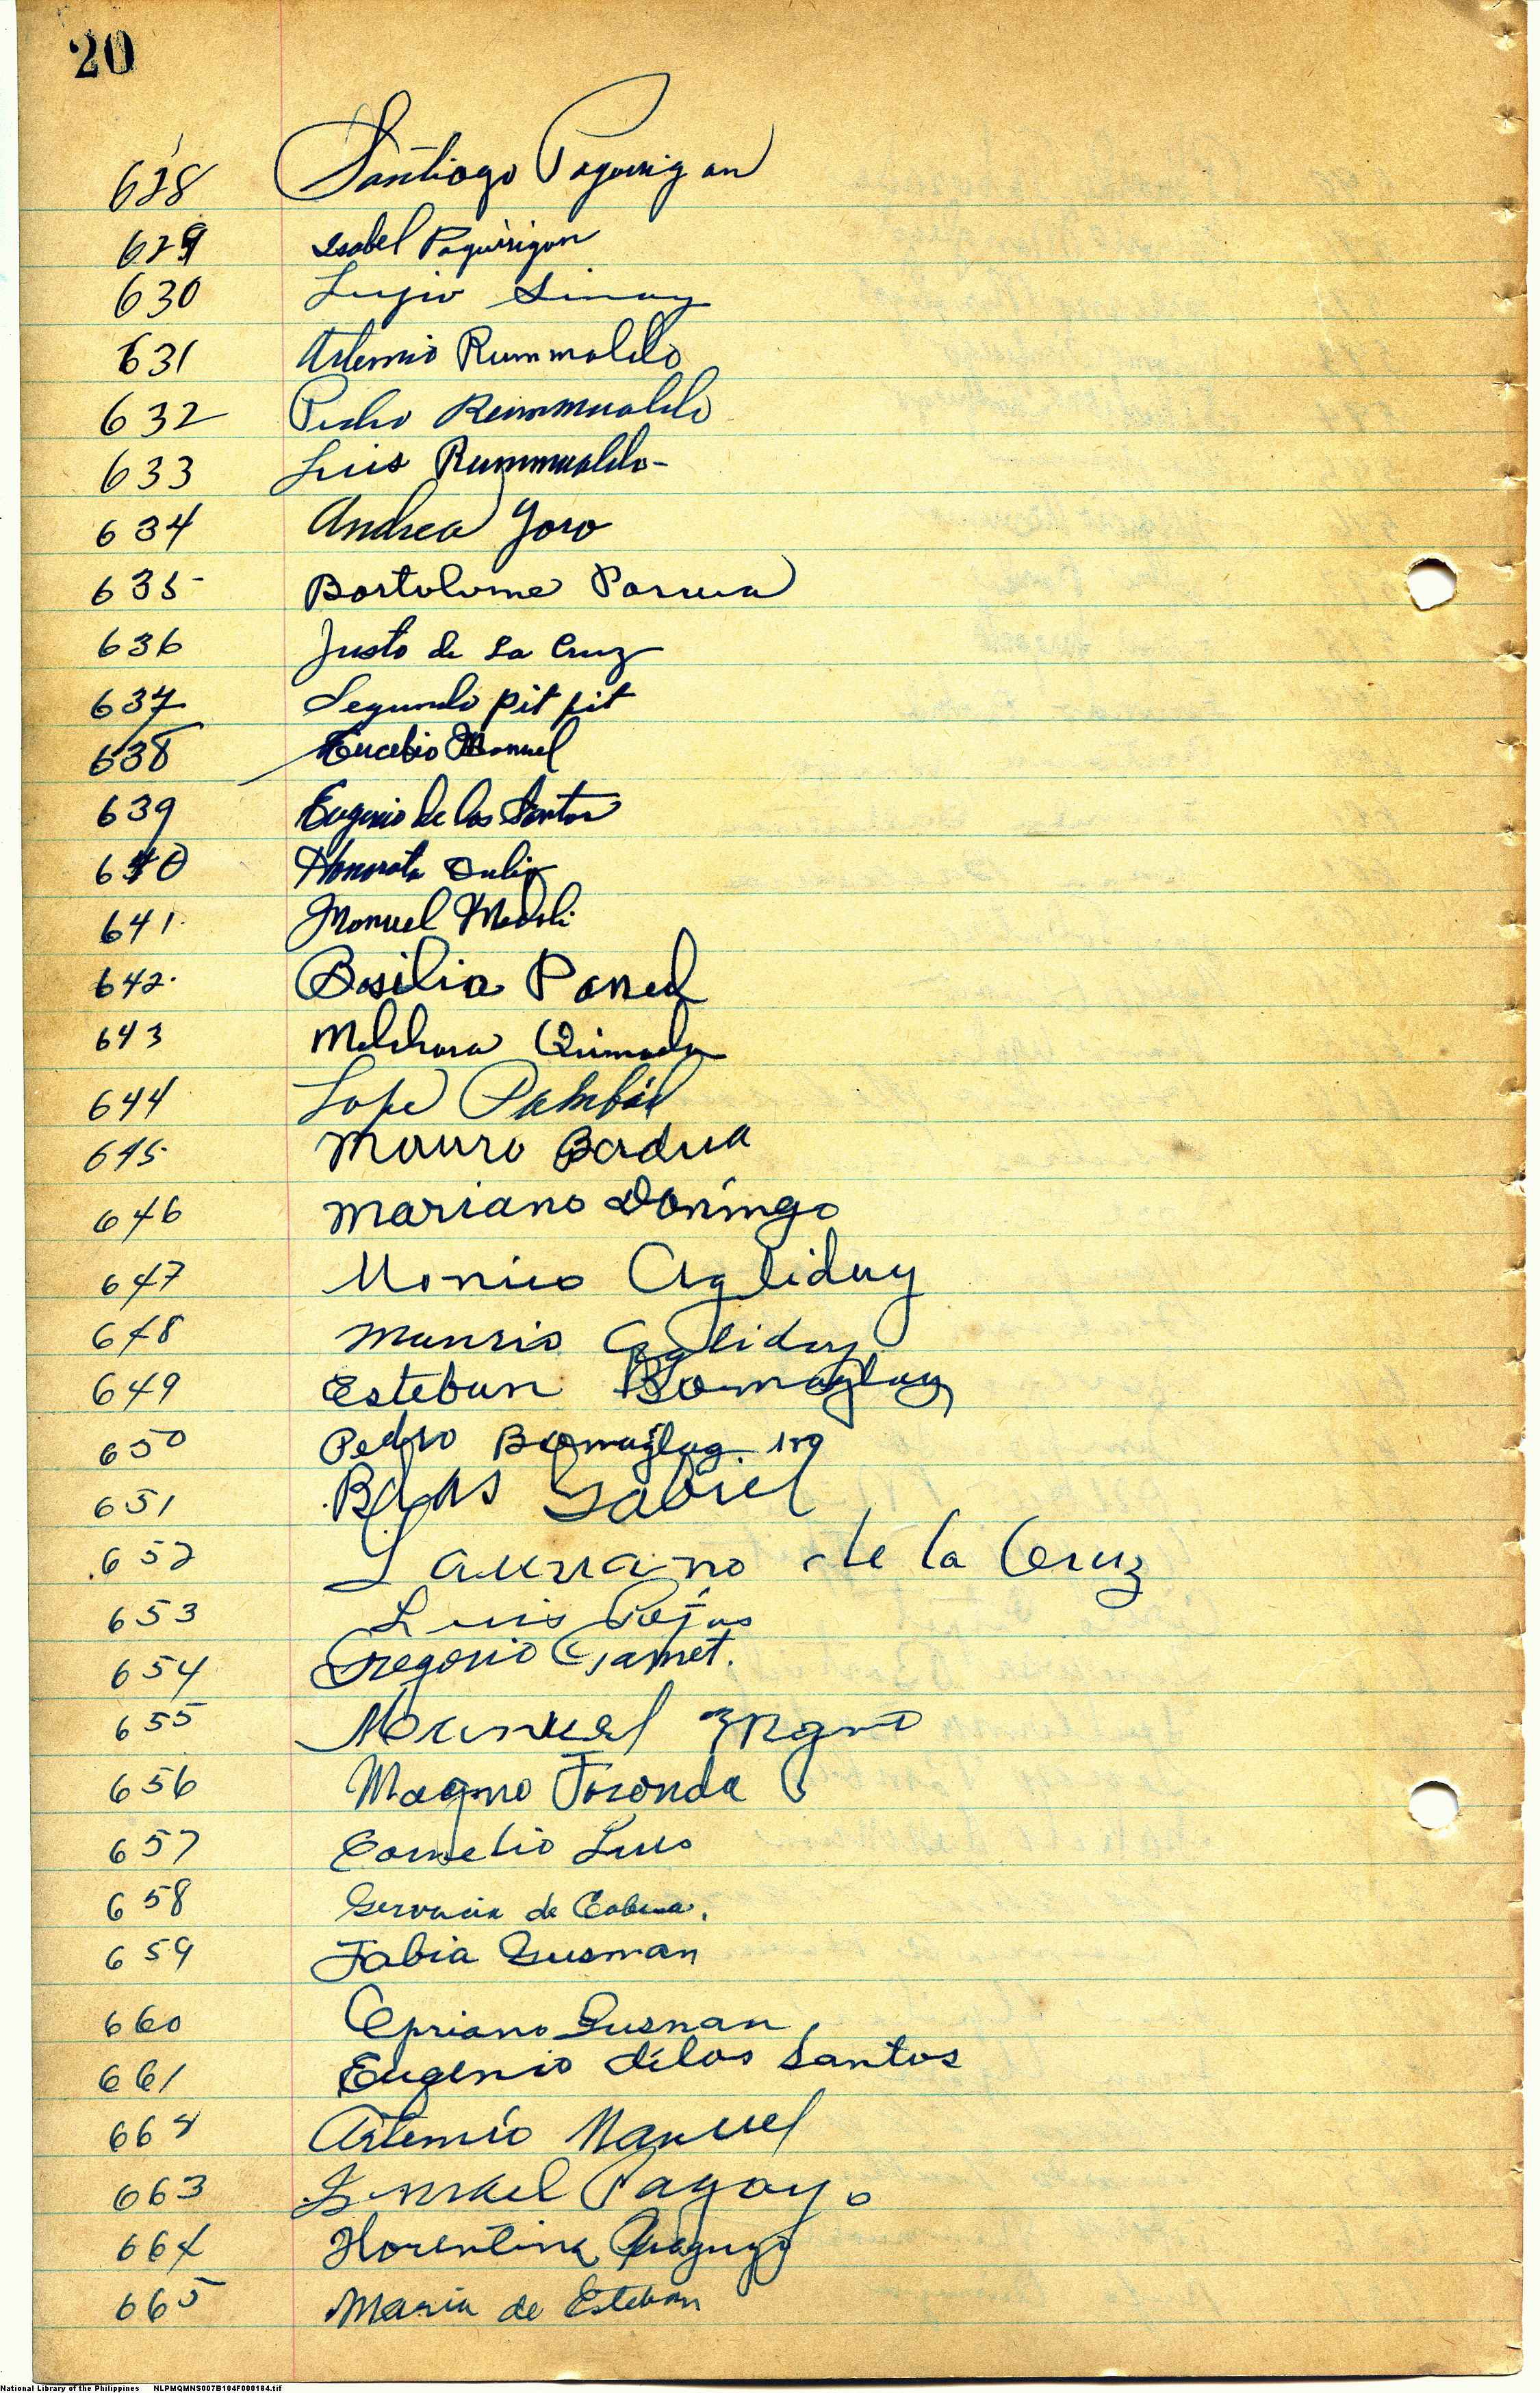 20
628 Santiago Paguirigan
629 Isabel Paguirigan
630 Lucio Sinay
631 Artemio Rummaldo
632 Pedro Rummualdo
633 Luis Rummualdo-
634 Andrea Joro
635 Bartolome Parrua
636 Justo de La Cruz
637 Segundo pit pit
638 Eucebio Manuel
639 Eugenio de los Santos
640 Honorata
641. Manuel
642. Basilia
643 Melchora
644 Lope
645 Mauro Badua
646 Mariano Domingo
647 Monico Agliduy
648 Agliduy
649 Esteban Bomaglag
650 Pedro Bomaglag
651 Blas Gabriel
652 Laureano de la Cruz
653 Luis Rojas
654 Gregorio Gamet.
655 Manuel
656 Magno Toronda
657 Cornelio Luis
658 Gervacia de Cabena.
659 Fabia Gusman
660 Cipriano Gusman
661 Eugenio délos Santos
662 Artemio Manuel
663 Ismael Pagay.
664 Florentina
665 Maria de Esteban
National Library of the Philippines NLPMQMNS007B104F000184.tif